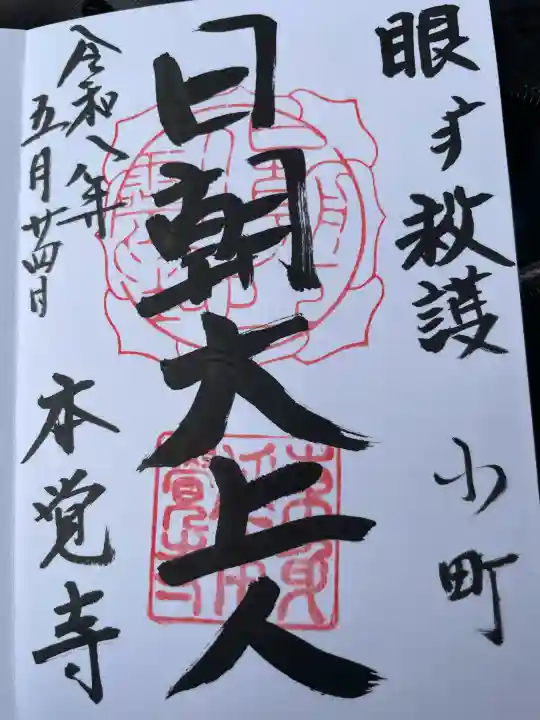 眼守救護
小町
日朝大上人
令和八年
五月廿四日
本覚寺